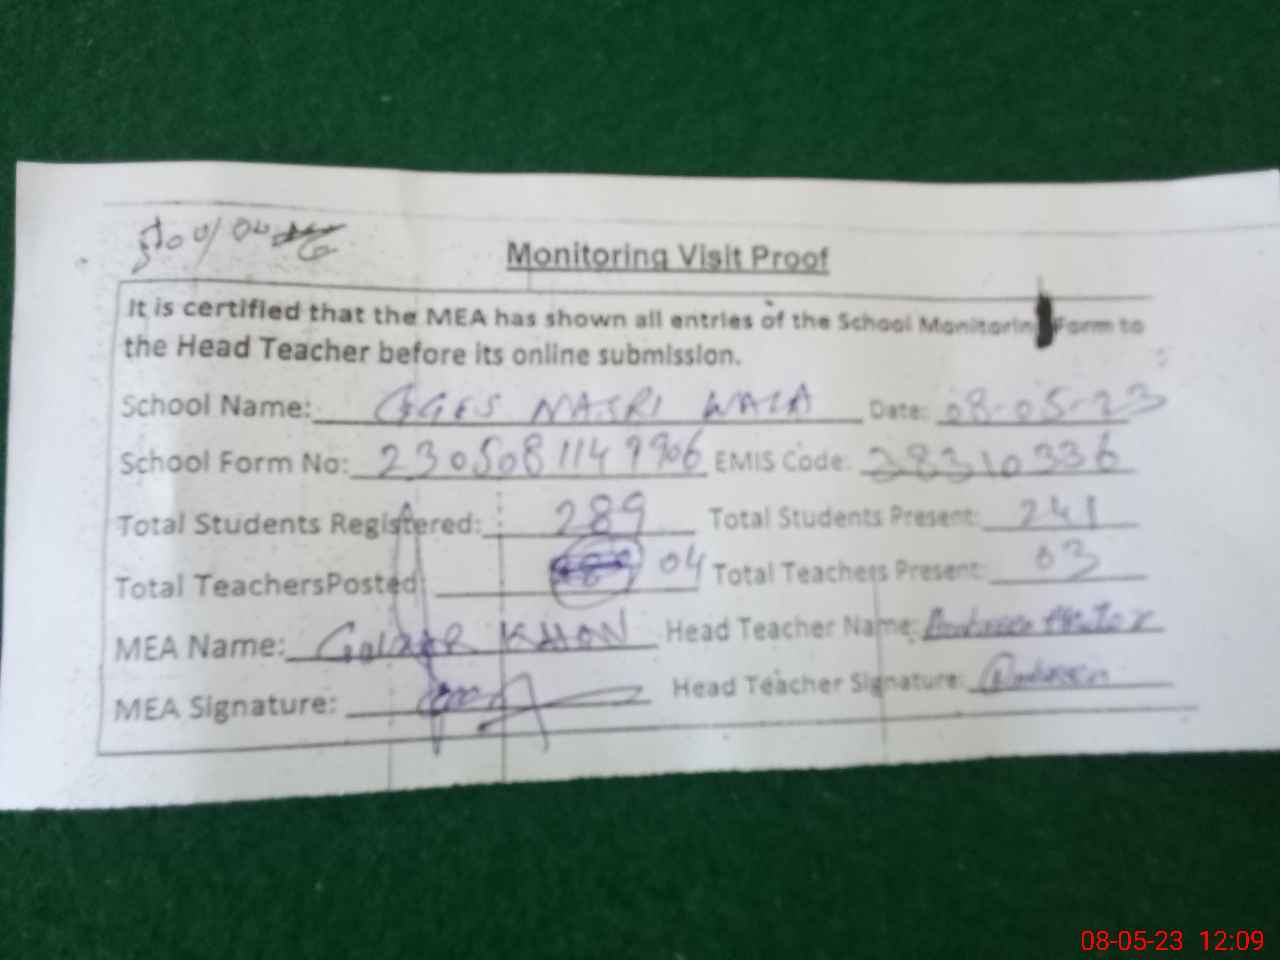 Monitoring Visit Proof
It is certified that the MEA has shown all entries of the School Monitoring Form to
the Head Teacher before its online submission.
School Name: GGES NASRI WALA Date: 08-05-23
School Form No: 2305081149906 EMIS Code: 38310336
Total Students Registered: 289 Total Students Present: 241
Total TeachersPosted 04 Total Teachers Present: 03
MEA Name: GULZAR KHAN Head Teacher Name:
MEA Signature: Head Teacher Signature:
08-05-23 12:09